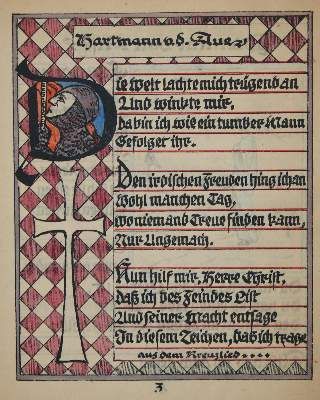 Hartmann v. d. Aue
Die Welt lachte mich trügend an
Und winkte mir,
da bin ich wie ein tumber Mann
Gefolget ihr.
Den irdischen Freuden hing ich an
Wohl manchen Tag,
wo niemand Treue finden kann,
Nur Ungemach.
Nun hilf mir, Herre Christ,
daß ich des Feindes List
Und seiner Macht entsage
In diesem Zeichen, daß ich trage
aus dem Kreuzlied....
3